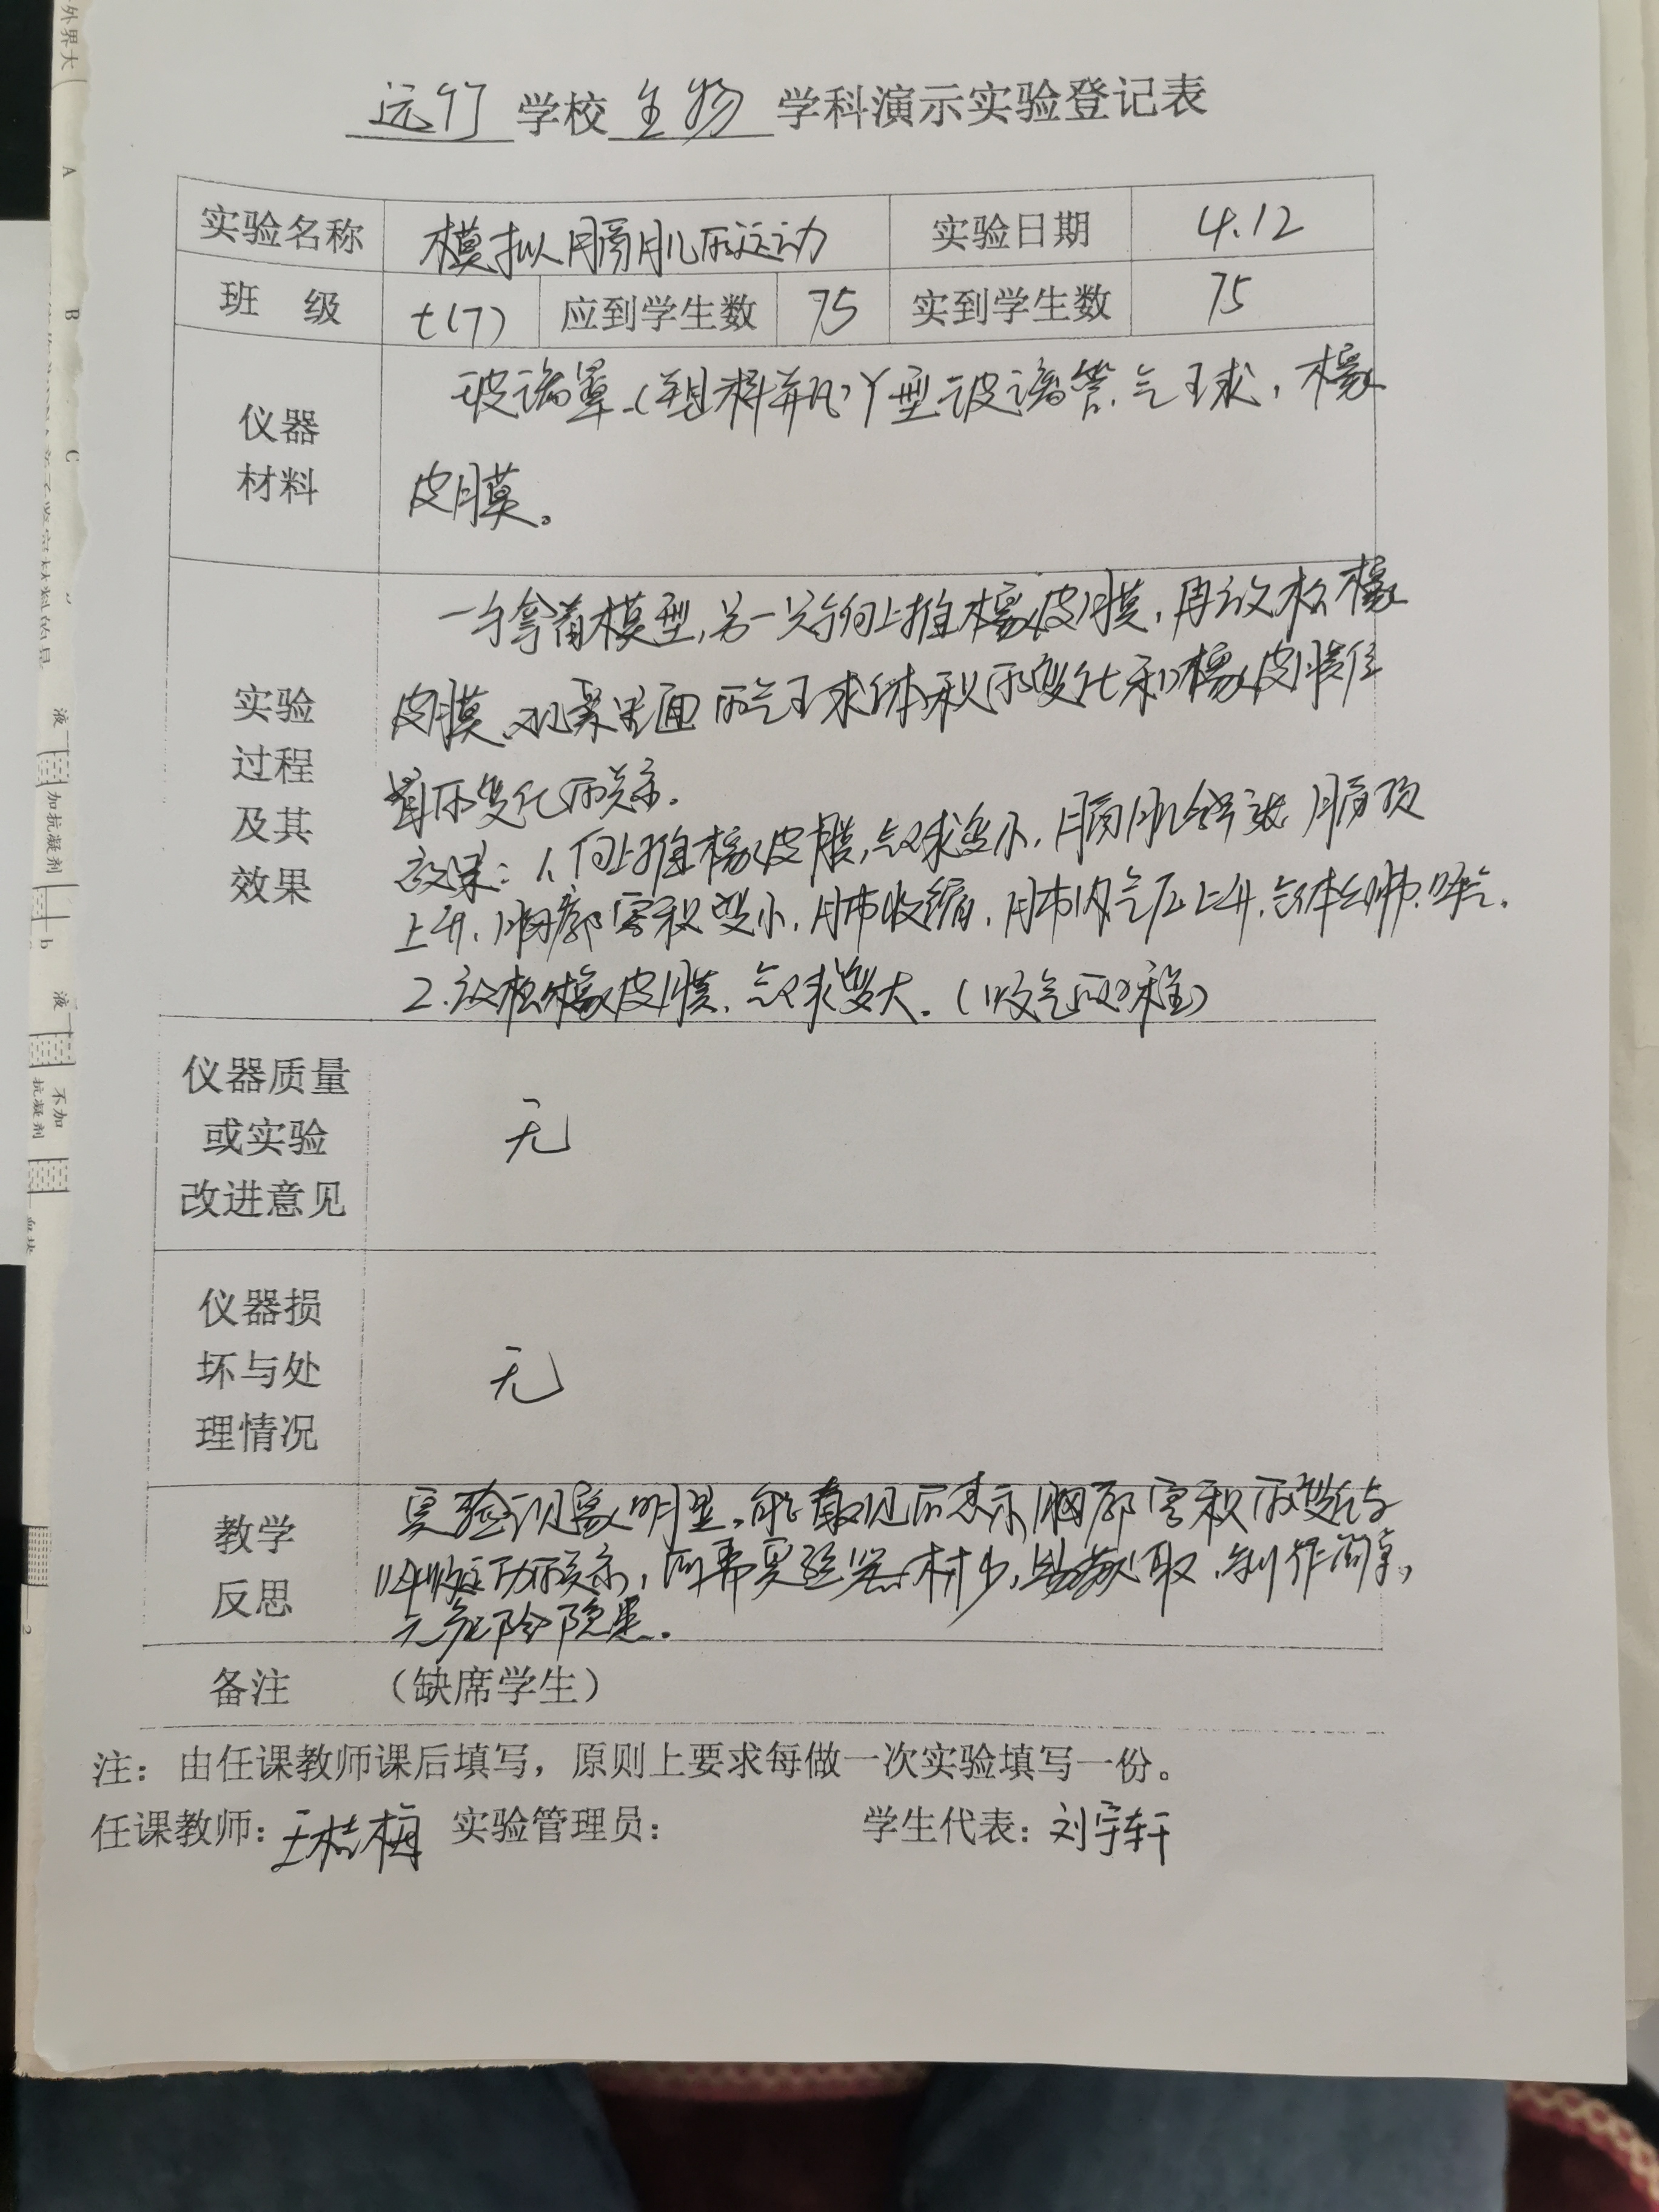 远行 学校 生物 学科演示实验登记表
实验名称 模拟膈肌的运动 实验日期 4.12
班 级 七(7) 应到学生数 75 实到学生数 75
仪器
材料
玻璃罩(塑料瓶)丫型玻璃管、气球、橡
皮膜。
实验
过程
及其
效果
一手拿着模型,另一只手向上推橡皮膜,再放松橡
皮膜,观察里面的气球体积的变化和橡皮膜位
置的变化的关系。
效果:1、向上推橡皮膜,气球变小,膈肌舒张 膈顶
上升,胸廓容积变小,肺收缩,肺内气压上升,气体出肺,呼气。
2.放松橡皮膜,气球变大。(吸气的过程)
仪器质量
或实验
改进意见
无
仪器损
坏与处
理情况
无
教学
反思
实验现象明显,能直观的表示胸廓容积的变化与
呼吸运动的关系,所需实验器材少, 取,制作简单,
无危险隐患。
备注 (缺席学生)
注:由任课教师课后填写,原则上要求每做一次实验填写一份。
任课教师:王桂梅 实验管理员: 学生代表:刘宇轩
外界大
A
B
C
液
加抗凝剂
b
液
不加
抗凝剂
2